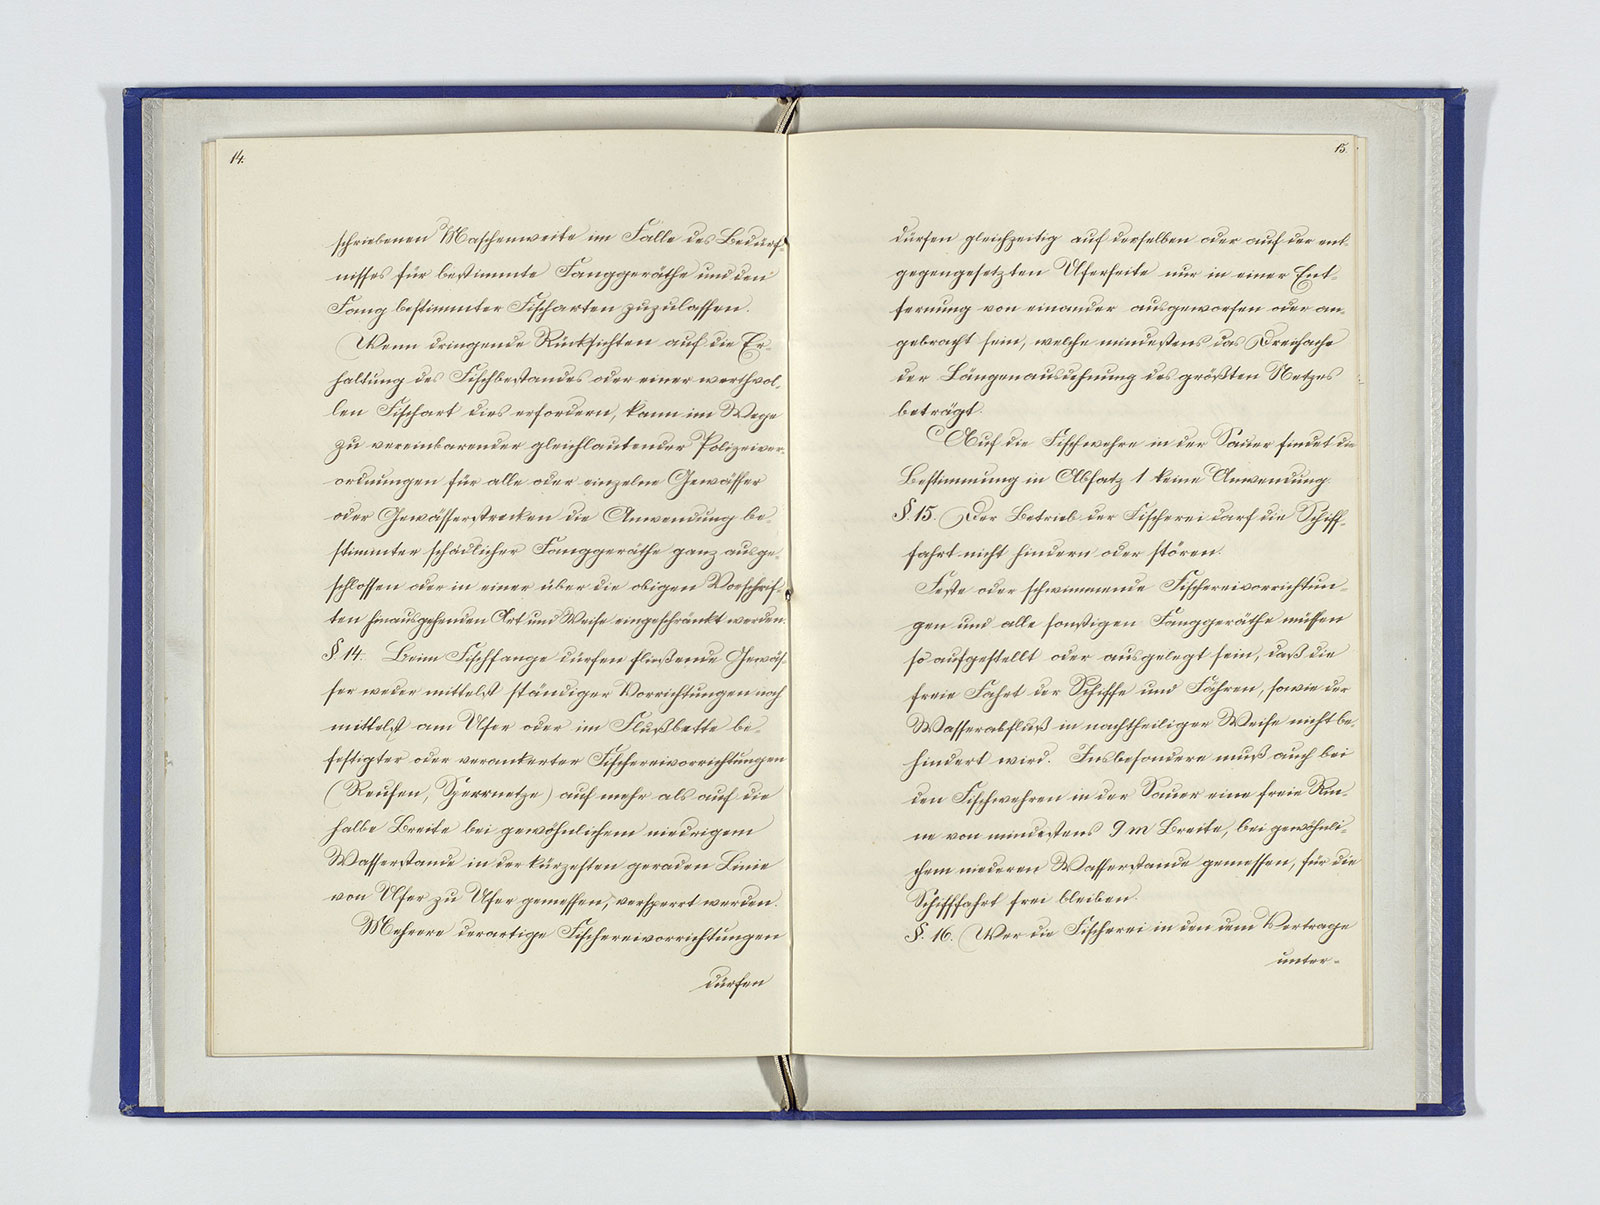 14.
schriebenen Maschenweite im Falle des Bedürf-
nisses für bestimmte Fanggeräthe und den
Fang bestimmter Fischarten zuzulassen.
Wenn dringende Rücksichten auf die Er-
haltung des Fischbestandes oder einer werthvol-
len Fischart dies erfordern, kann im Wege
zu vereinbarender gleichlautender Polizeiver-
ordnungen für alle oder einzelne Gewässer
oder Gewässerstrecken die Anwendung be-
stimmter schädlicher Fanggeräthe ganz ausge-
schlossen oder in einer über die obigen Vorschrif-
ten hinausgehenden Art und Weise eingeschränkt werden.
§ 14. Beim Fischfange dürfen fließende Gewäs-
ser weder mittelst ständiger Vorrichtungen noch
mittelst am Ufer oder im Flußbette be-
festigter oder verankerter Fischereivorrichtungen
(Reusen, Sperrnetze) auf mehr als auf die
halbe Breite bei gewöhnlichem niedrigem
Wasserstande in der kürzesten geraden Linie
von Ufer zu Ufer gemessen, versperrt werden.
Mehrere derartige Fischereivorrichtungen
dürfen
15.
dürfen gleichzeitig auf derselben oder auf der ent-
gegengesetzten Uferseite nur in einer Ent-
fernung von einander ausgeworfen oder an-
gebracht sein, welche mindestens das Dreifache
der Längenausdehnung des größten Netzes
beträgt.
Auf die Fischwehre in der Sauer findet die
Bestimmung in Absatz 1 keine Anwendung.
§. 15. Der Betrieb der Fischerei darf die Schiff-
fahrt nicht hindern oder stören.
Feste oder schwimmende Fischereivorrichtun-
gen und alle sonstigen Fanggeräthe müssen
so aufgestellt oder ausgelegt sein, daß die
freie Fahrt der Schiffe und Fähren, sowie der
Wasserabfluß in nachtheiliger Weise nicht be-
hindert wird. Insbesondere muß auch bei
den Fischwehren in der Sauer eine freie Rin-
ne von mindestens 9 m Breite, bei gewöhnli-
chem niederen Wasserstande gemessen, für die
Schifffahrt frei bleiben.
§. 16. Wer die Fischerei in den dem Vertrage
unter-